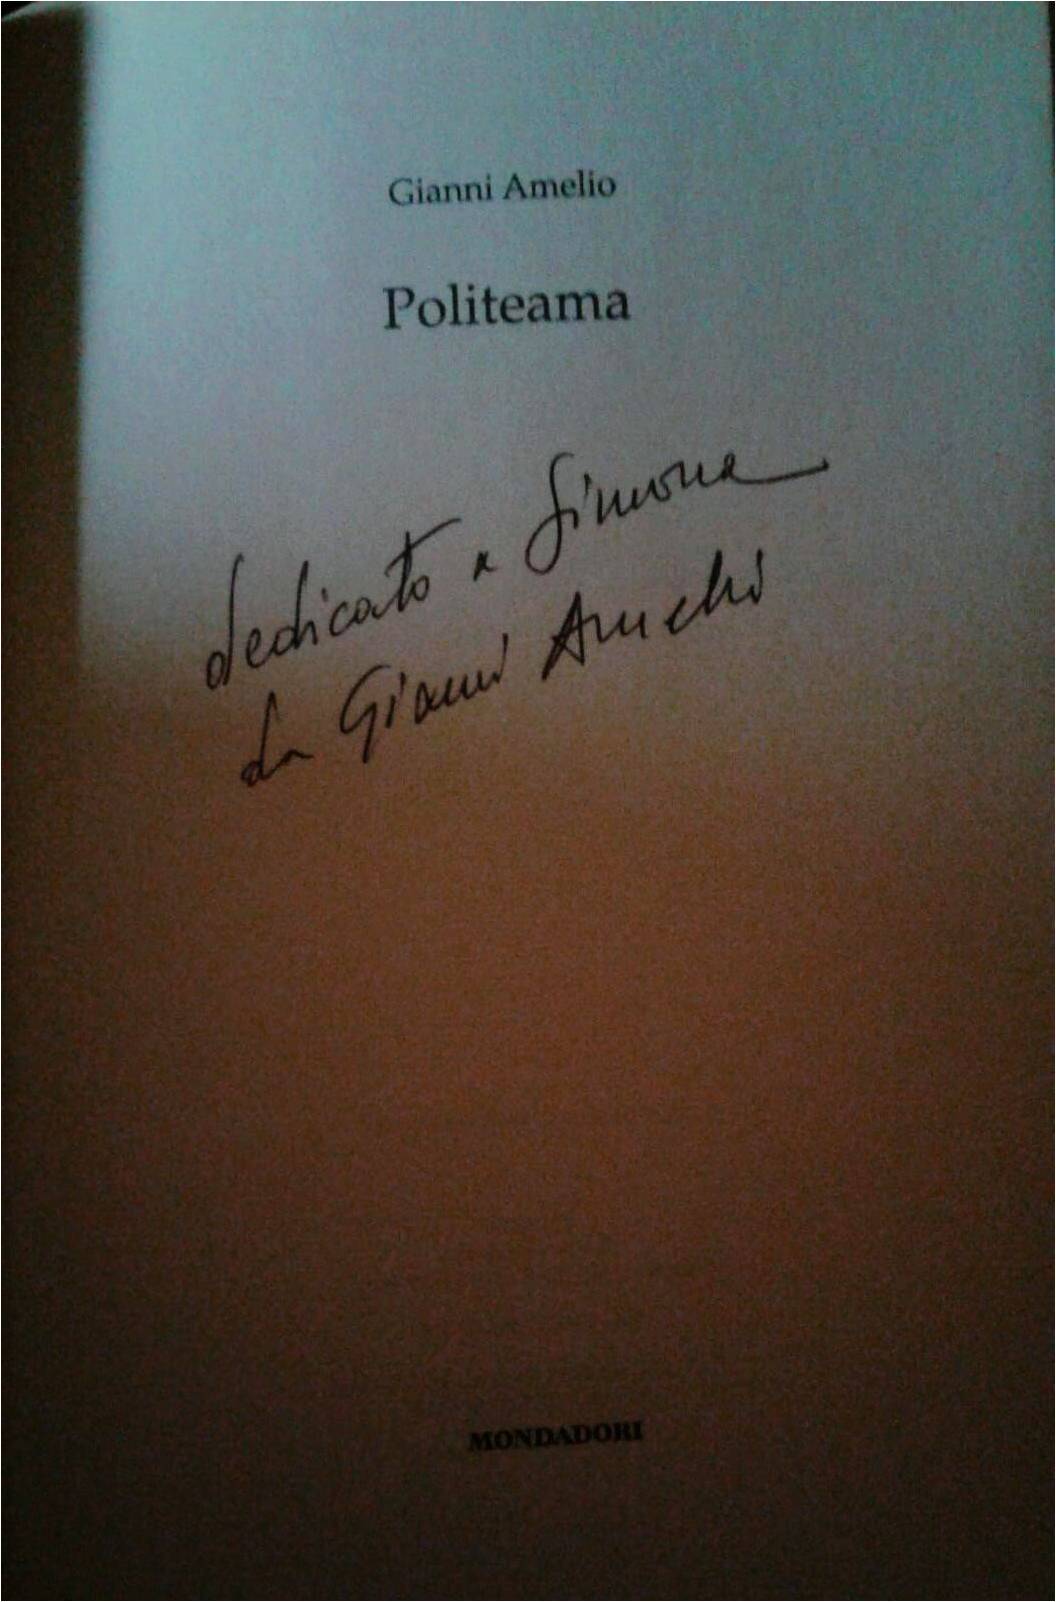 Gianni Amelio
Politeama
dedicato a Simona
da Gianni Amelio
MONDADORI